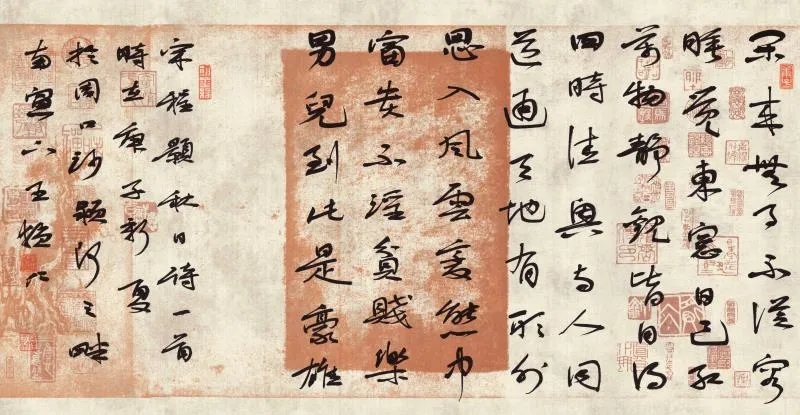 閑来無事不從容
睡覺東窓日已紅
萬物靜觀皆自得
四時佳興与人同
道通天地有形外
思入風雲變態中
富贵不淫貧賤樂
男兒到此是豪雄
宋程顥秋日詩一首
時在庚子新夏
於周口沙潁河之畔
南窓下王